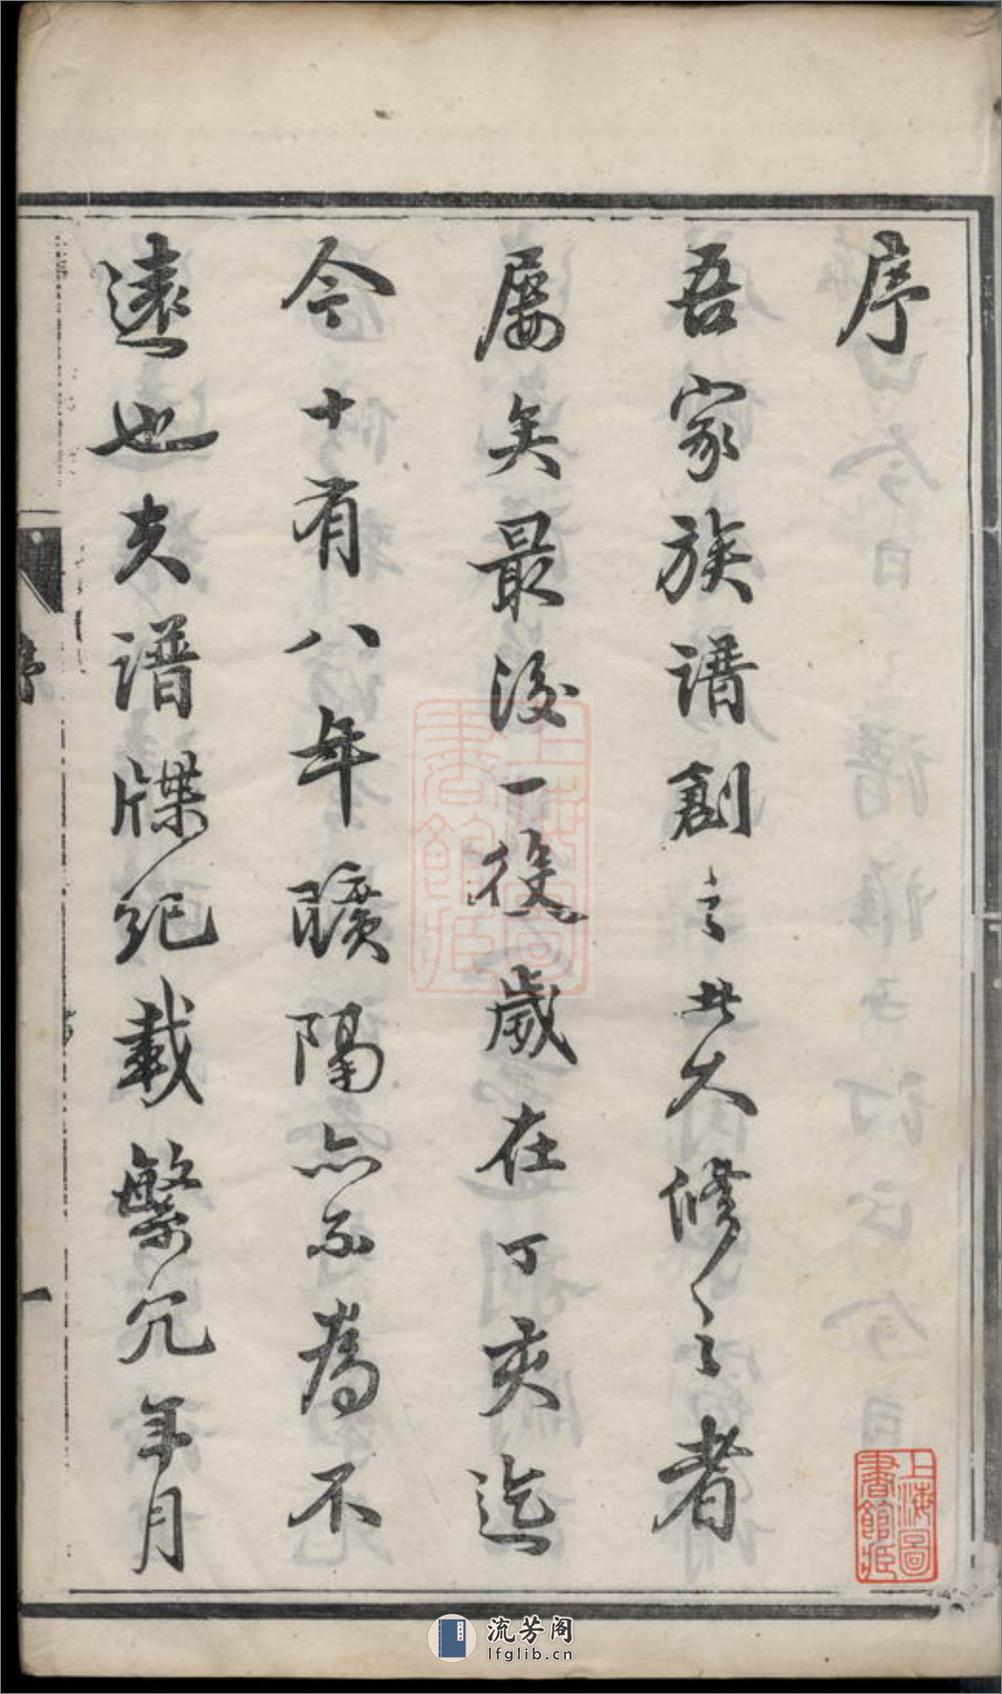 序
吾家族譜創之其久修之者
屢矣最後一役歲在丁亥迄
今十有八年曠隔亦不為不
遠也夫譜牒紀載繁冗年月
序
一
上海圖書館藏
上海圖書館藏
流芳阁
lfglib.cn